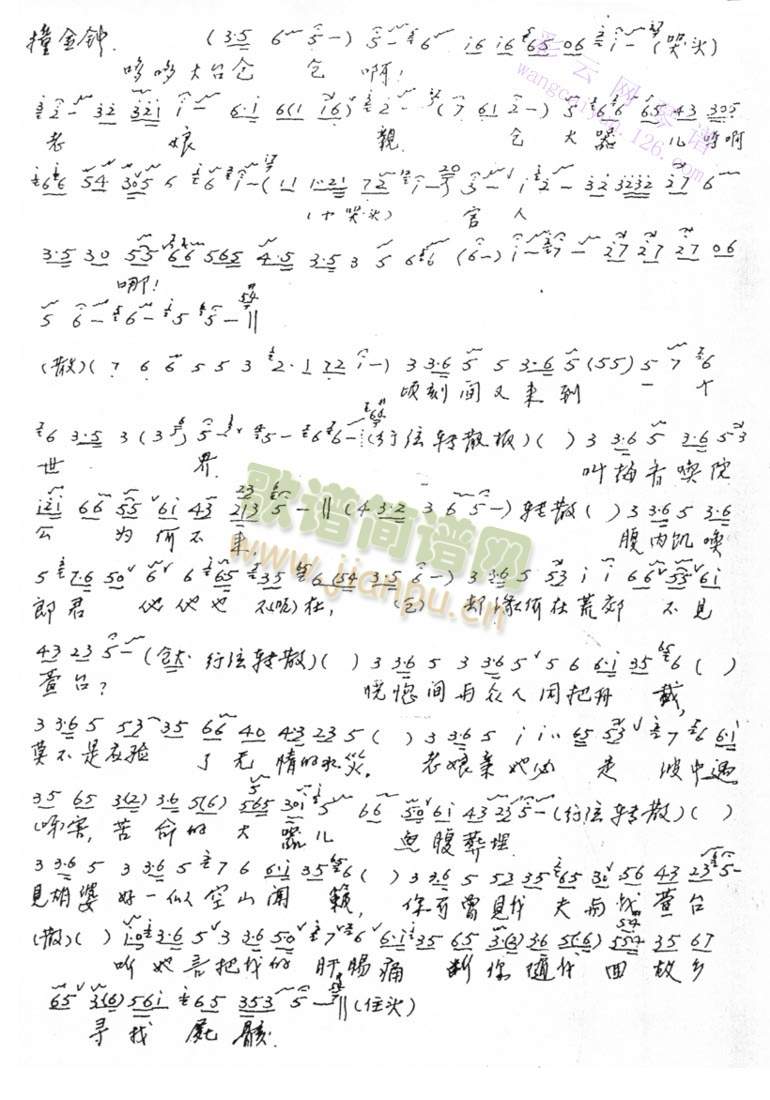 撞金钟. (3·5 6 5-) 5-6 i6 i6 65 06 i-(哭头)
哆哆大台仓 仓 啊!
2- 32 321 i- 6·i 6(1 i6) 2-(7 61 2-) 5 6 6 65 43 305
老 娘 親 仓 大 器 儿 呀啊
66 54 305 6 6 i-(11 1·21 72 i-) 3- i 2- 32 3232 27 6
(十哭头) 官人
3·5 30 55 66 565 4·5 3·5 3 5 66 (6-) i-7- 27 27 27 06
哪!
5 6-6-5 5-‖
(散)(7 6 6 5 5 3 2·1 72 i-) 3 3·6 5 5 3·6 5 (55) 5 7 6
顷刻间又来到 一 个
6 3·5 3 (3 5) 5-5-6 6-(行弦转散板)( ) 3 3·6 5 3·6 5 3
世 界. 叫梅香唤院
i2i 66 55 6i 43 213 5-‖(4 3·2 3 6 5-)转散( ) 3 3·6 5 3·6
公 为何不来. 腹内饥唤
5 7·6 50 6 6 65 35 6 (54 3·5 6-) 3 3·6 5 53 i i 66 53 6i
郎君 他他也 不(呃)在, (仓) 却缘何在荒郊 不见
43 23 5-(仓大·行弦转散)( ) 3 3·6 5 3 3·6 5 5 6 6·i 35 6 ( )
萱台? 恍惚间与众人同把舟 载,
3 3·6 5 53 35 66 40 43 23 5 ( ) 3 3·6 5 i i·· 65 53 7 6 6·i
莫不是应验 了无情的水灾. 老娘亲她必 走 波中遇
35 65 3(2) 36 5(6) 565 30i 5 66 50 6i 43 22 5-(行弦转散)( )
(咏)害, 苦命的大器儿 鱼腹葬埋.
3 3·6 5 3 3·6 5 7 6 6·i 35 6 ( ) 3 3·6 5 53 35 65 30 56 43 23 5-
見胡婆好一似空山闻 籁, 你可曾見我 夫与我 萱台
(散)( ) i·0 3·6 5 3 3·6 50 7 6 6·i 35 65 3·(2) 36 5(6) 554 35 67
听她言把我的肝肠痛 断 你随我 回 故乡
65 3(6) 56i 65 353 5-‖(住头)
寻找 屍 骸.
彩云网琴谱
歌谱简谱网
www.jianpu.cn